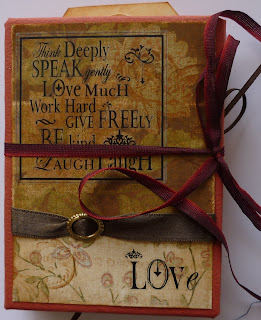 Think Deeply
SPEAK gently
LOve MucH
Work Hard
GIVE FREEly
BE kind
LAUGH LaugH
LOve